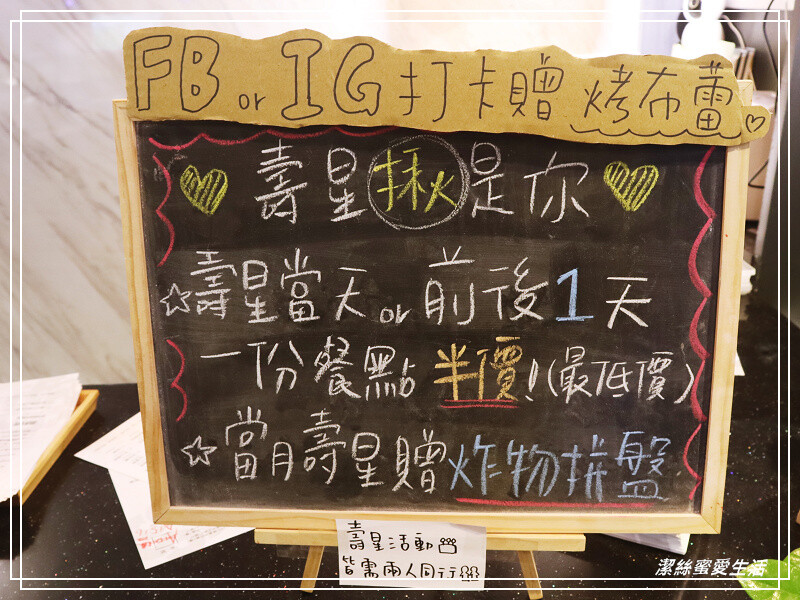 FB or IG 打卡贈 烤布蕾
壽星揪是你
☆壽星當天 or 前後1天
一份餐點 半價!(最低價)
☆當月壽星贈炸物拼盤
壽星活動
皆需兩人同行
潔絲蜜愛生活